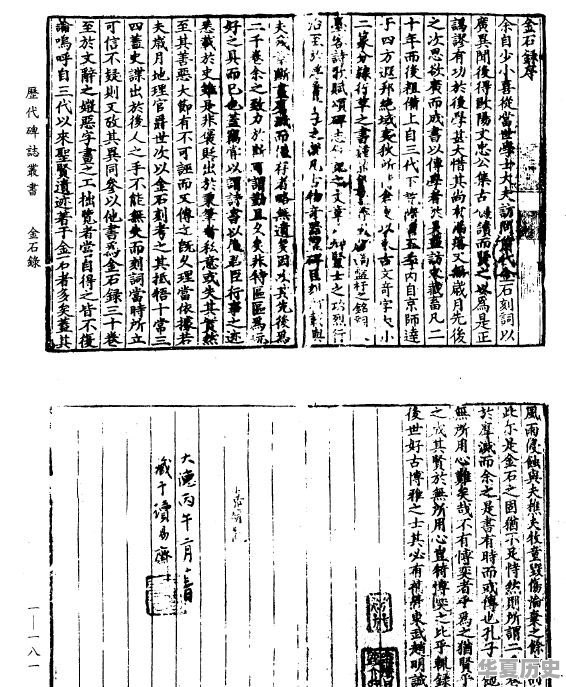 金石錄序
余自少小喜從當世學士大夫訪問前代金石刻詞以
廣異聞後得歐陽文忠公集古錄讀而賢之以為是正
譌謬有功於後學甚大惜其尚有漏落又無歲月先後
之次思欲廣而成書以傳學者於是益訪求藏畜凡二
十年而後粗備上自三代下訖隋唐五季內自京師達
于四方遐邦絕域夷狄所傳倉史以來古文奇字大小
二篆分隸行草之書鐘鼎盤杅之銘詞
墨客詩歌賦頌碑志敘記之文章名卿賢士之功烈行
治至於浮屠老子之說凡古物奇器豐碑巨刻所載與
夫殘章斷畫磨滅而僅存者略無遺矣因次其先後為
二千卷余之致力於斯可謂勤且久矣非特區區為玩
好之具而已也蓋竊嘗以謂詩書以後君臣行事之迹
悉載於史雖是非褒貶出於秉筆者私意或失其實然
至其善惡大節有不可誣而又傳之既久理當依據若
夫歲月地理官爵世次以金石刻考之其抵牾十常三
四蓋史諜出於後人之手不能無失而刻詞當時所立
可信不疑則又攷其異同參以他書為金石錄三十卷
至於文辭之媺惡字畫之工拙覽者當自得之皆不復
論嗚呼自三代以來聖賢遺迹著于金石者多矣蓋其
歷代碑誌叢書 金石錄
風雨侵蝕與夫樵夫牧童毀傷淪棄之餘
此尔是金石之固猶不足恃然則所謂二
於摩滅而余之是書有時而或傳也孔子
無所用心難矣哉不有博奕者乎為之猶賢乎
之成其賢於無所用心豈特博奕之比乎輒錄
後世好古博雅之士其必有補焉東武趙明誠
大德丙午二月
藏于讀易齋
一—一八一
华夏历史